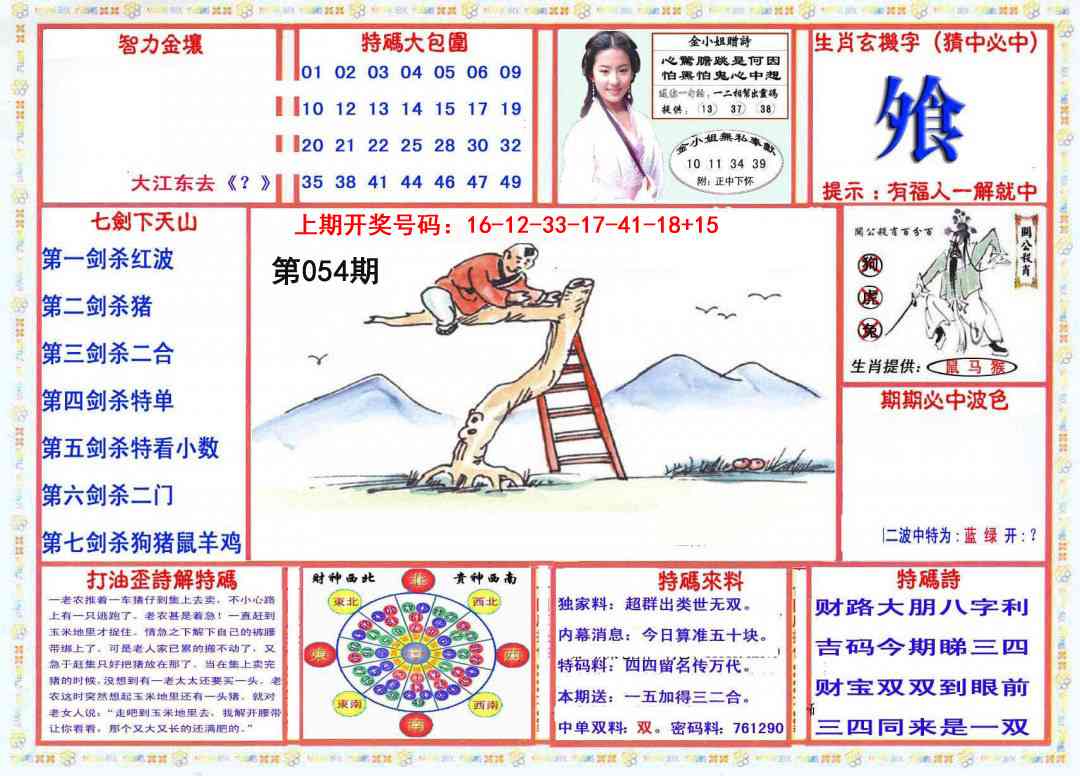 智力金壤
大江东去《？》
特碼大包圍
01 02 03 04 05 06 09
10 12 13 14 15 17 19
20 21 22 25 28 30 32
35 38 41 44 46 47 49
金小姐贈詩
心驚膽跳是何因
怕黑怕鬼心中想
一二相幫出靈碼
提供：(13) 37) 38)
金小姐無私奉獻
10 11 34 39
附：正中下怀
生肖玄機字（猜中必中）
飱
提示：有福人一解就中
七劍下天山
第一剑杀红波
第二剑杀猪
第三剑杀二合
第四剑杀特单
第五剑杀特看小数
第六剑杀二门
第七剑杀狗猪鼠羊鸡
上期开奖号码：16-12-33-17-41-18+15
第054期
關公殺肖百分百
關公殺肖
狗
虎
兔
生肖提供：鼠 马 猴
期期必中波色
二波中特为：蓝 绿 开：？
打油歪詩解特碼
一老农推着一车猪仔到集上去卖，不小心路
上有一只逃跑了。老农甚是着急！一直赶到
玉米地里才捉住。情急之下解下自己的裤腰
带绑上了。可是老人家已累的搬不动了，又
急于赶集只好把猪放在那了。当在集上卖完
猪的时候，没想到有一老太太还要买一头。老
农这时突然想起玉米地里还有一头猪。就对
老女人说：“走吧到玉米地里去，我解开腰带
让你看看，那个又大又长的还满肥的。”
財神西北 貴神西南
北
東北 西北
東 西
東南 西南
南
特碼來料
独家料：超群出类世无双。
内幕消息：今日算准五十块。
特码料：四四留名传万代。
本期送：一五加得三二合。
中单双料：双。密码料：761290
特碼詩
财路大朋八字利
吉码今期睇三四
财宝双双到眼前
三四同来是一双